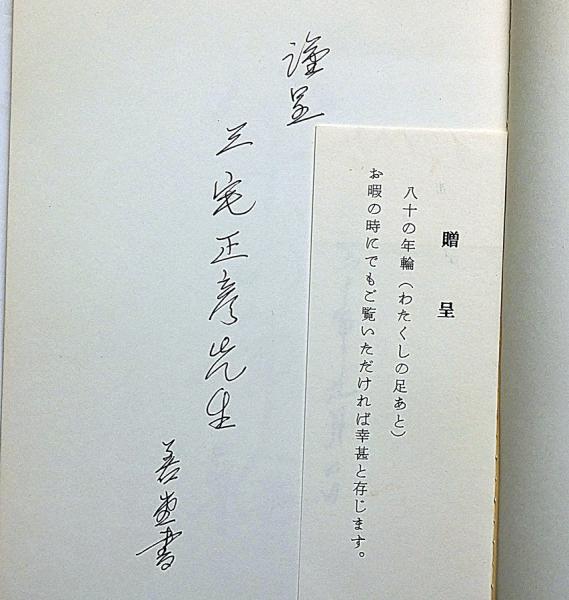 贈呈
八十の年輪（わたくしの足あと）
お暇の時にでもご覧いただければ幸甚と存じます。
謹呈
三宅正彦先生
善
書